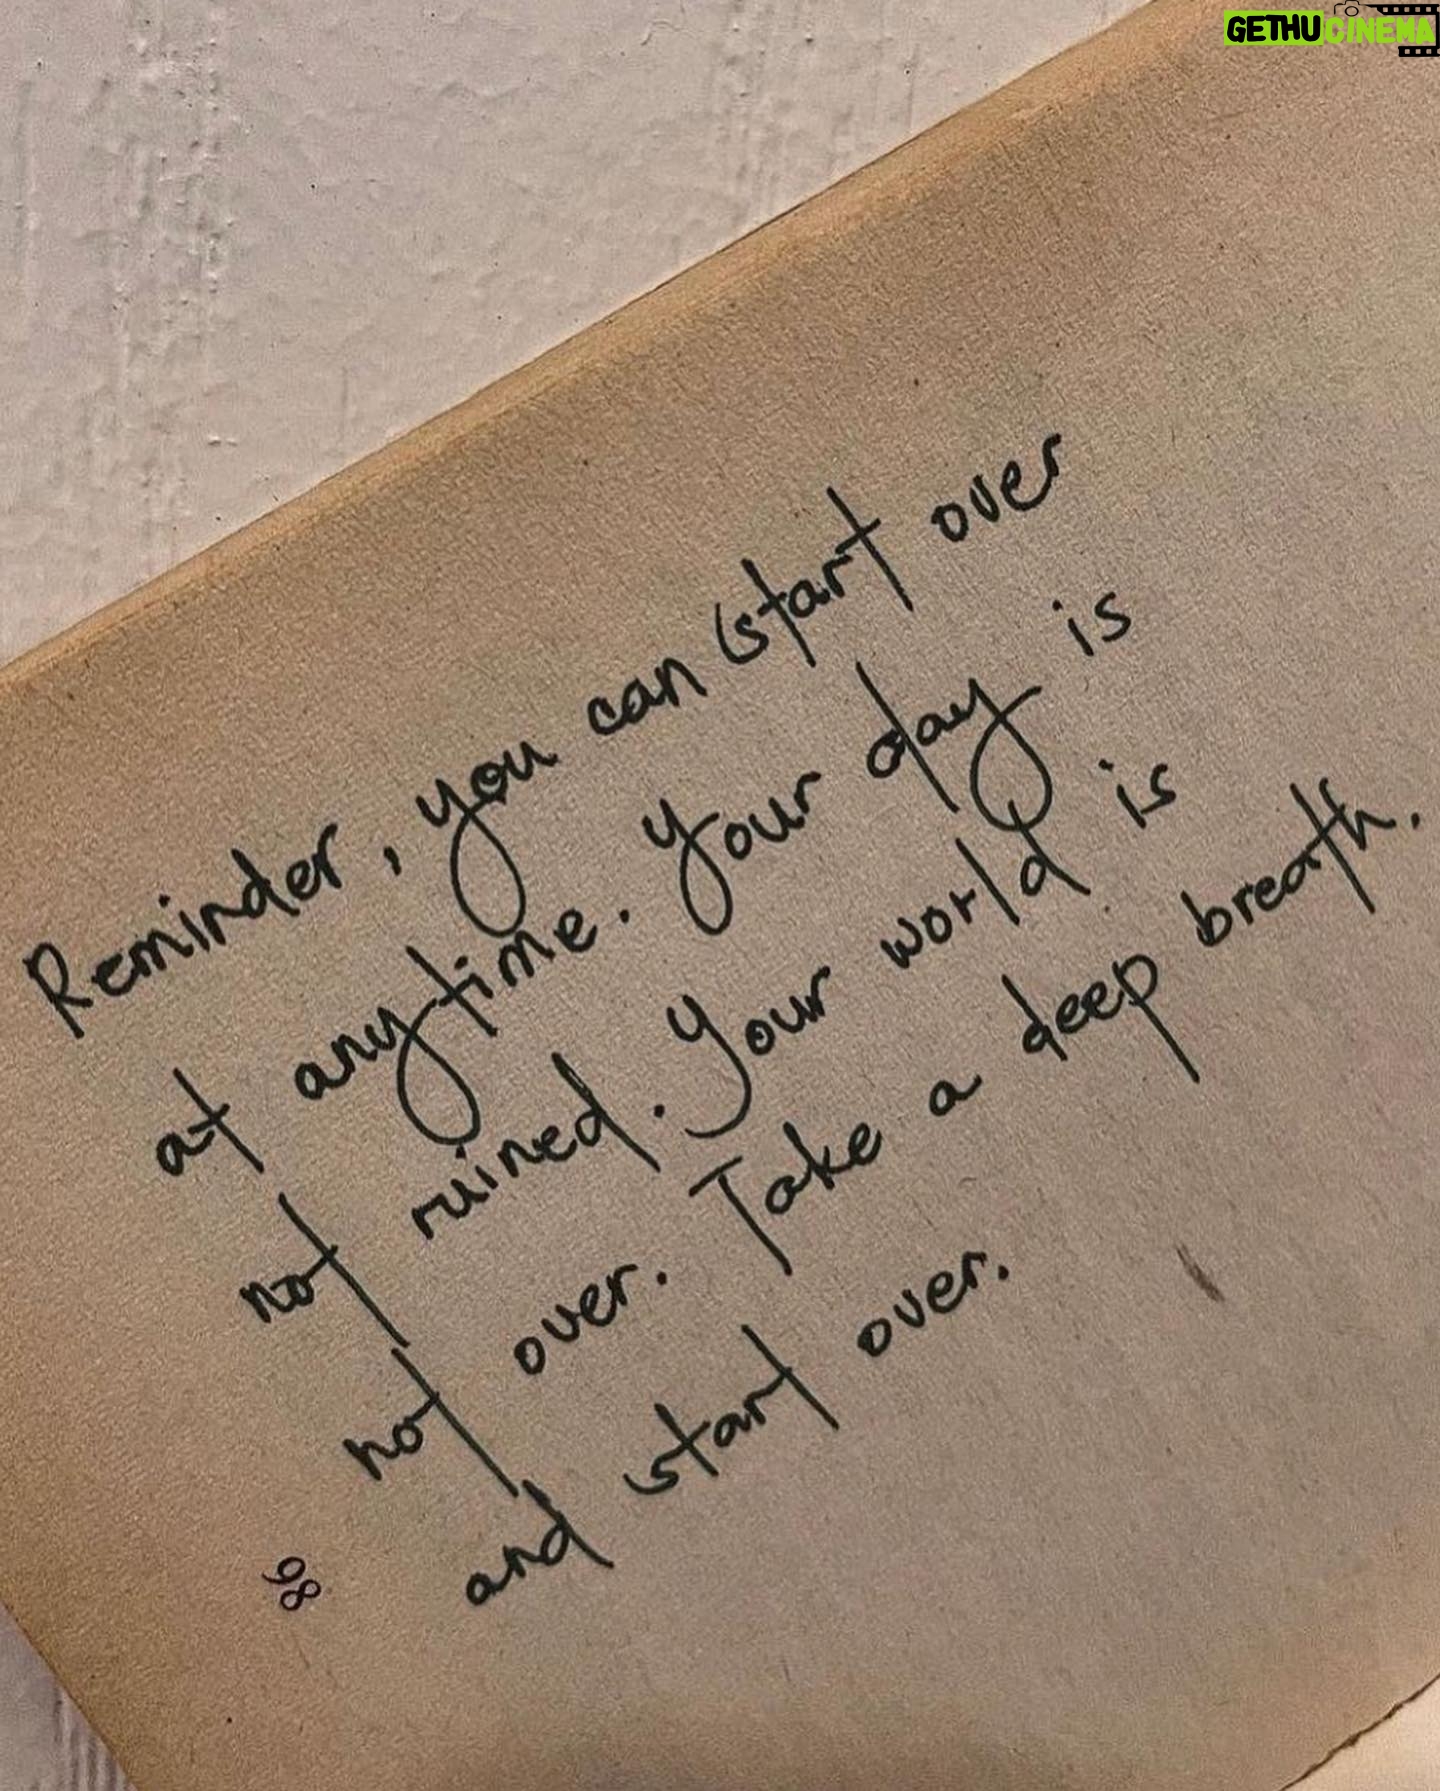 GETHU CINEMA
Reminder, you can start over
at anytime. Your day is
not ruined. Your world is
not over. Take a deep breath.
and start over.
98